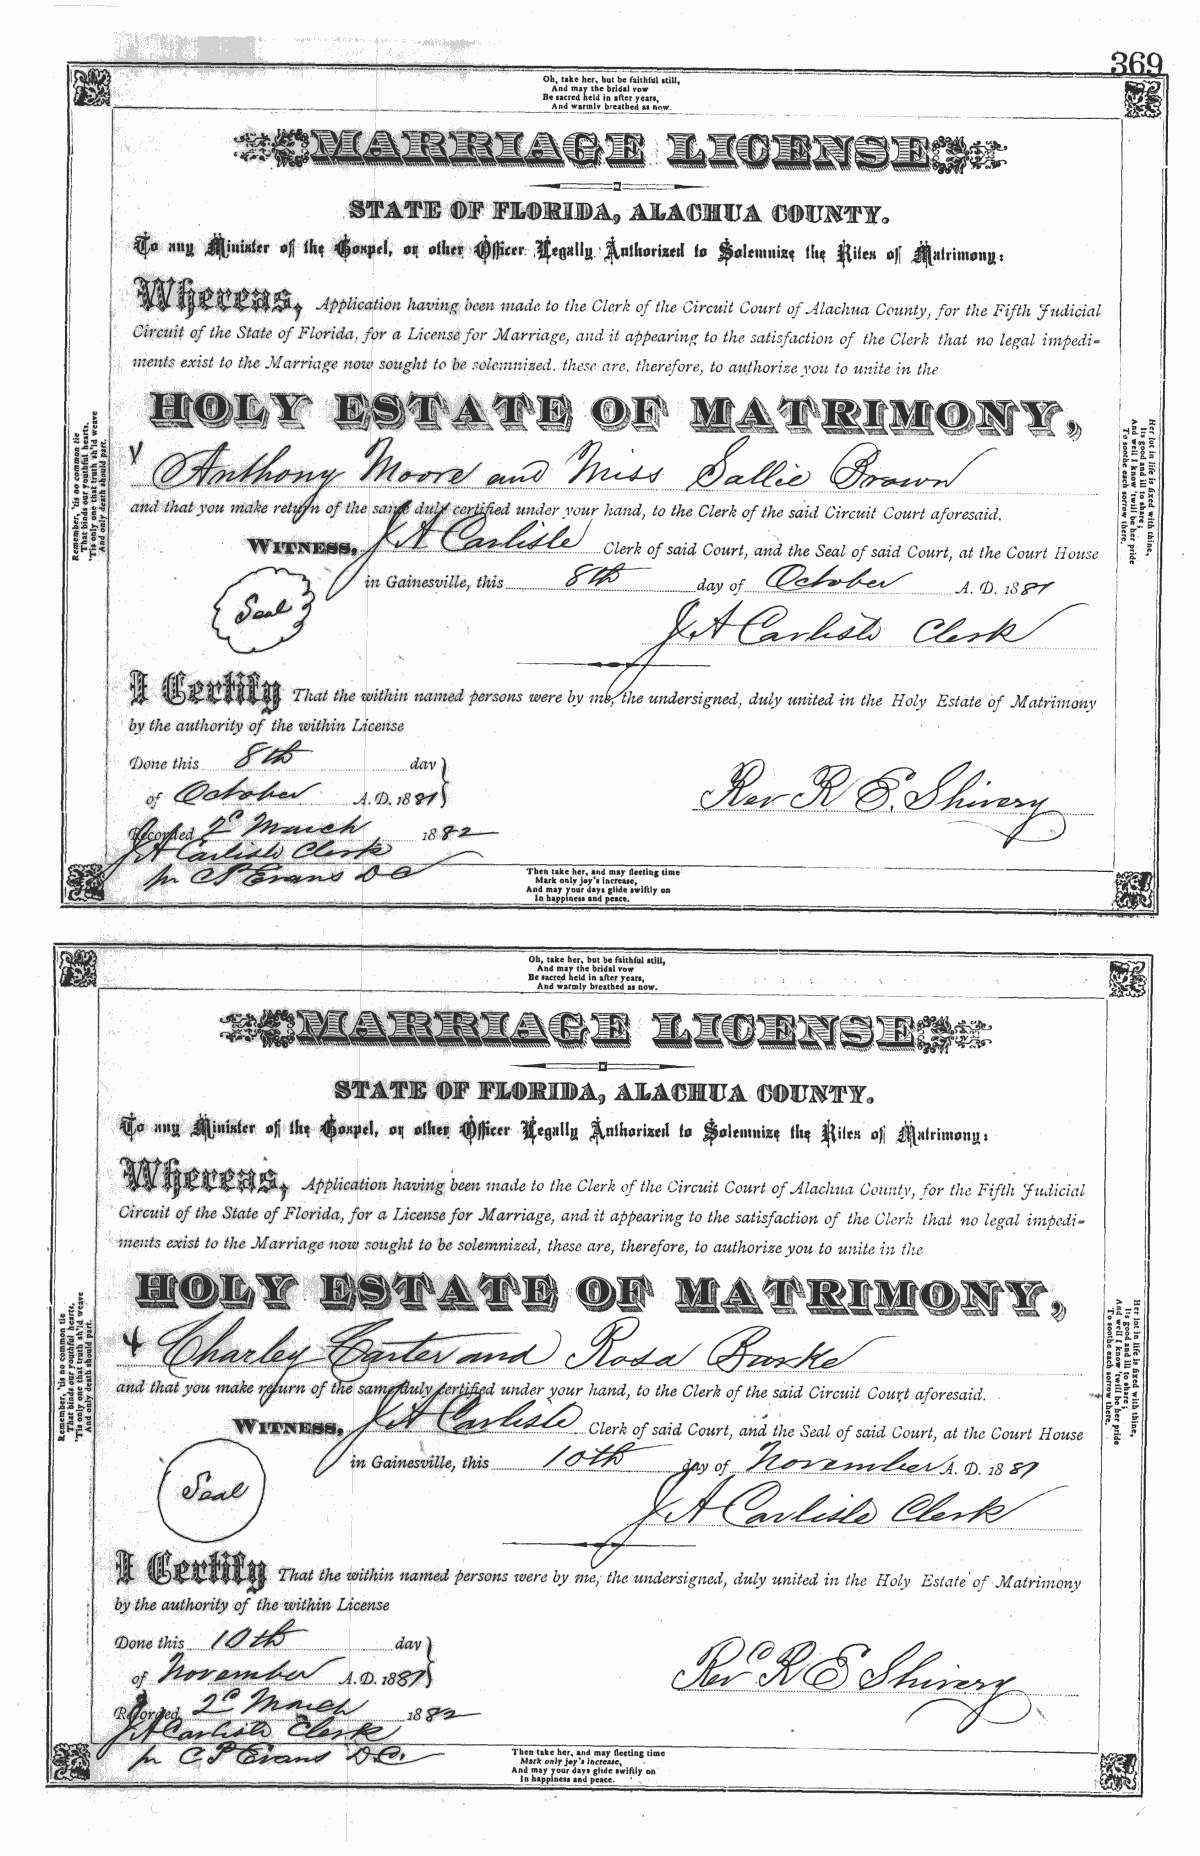 369
Oh, take her, but be faithful still,
And may the bridal vow
Be sacred held in after years,
And warmly breathed as now.
MARRIAGE LICENSE
STATE OF FLORIDA, ALACHUA COUNTY.
To any Minister of the Gospel, or other Officer Legally Authorized to Solemnize the Rites of Matrimony:
Whereas, Application having been made to the Clerk of the Circuit Court of Alachua County, for the Fifth Judicial
Circuit of the State of Florida, for a License for Marriage, and it appearing to the satisfaction of the Clerk that no legal impedi-
ments exist to the Marriage now sought to be solemnized. these are, therefore, to authorize you to unite in the
HOLY ESTATE OF MATRIMONY,
Anthony Moore and Miss Sallie Brown
and that you make return of the same duly certified under your hand, to the Clerk of the said Circuit Court aforesaid.
WITNESS, J A Carlisle Clerk of said Court, and the Seal of said Court, at the Court House
in Gainesville, this 8th day of October A. D. 1881
Seal
J A Carlisle Clerk
I Certify That the within named persons were by me, the undersigned, duly united in the Holy Estate of Matrimony
by the authority of the within License
Done this 8th day
of October A. D. 1881
Rev R E. Shivery
Recorded 2d March 1882
J A Carlisle Clerk
pr C P Evans D C
Remember, 'tis no common tie
That binds our youthful hearts,
'Tis only one that truth sh'ld weave
And only death should part.
Her lot in life is fixed with thine,
Its good and ill to share;
And well I know 'twill be her pride
To soothe each sorrow there.
Then take her, and may fleeting time
Mark only joy's increase,
And may your days glide swiftly on
In happiness and peace.
Oh, take her, but be faithful still,
And may the bridal vow
Be sacred held in after years,
And warmly breathed as now.
MARRIAGE LICENSE
STATE OF FLORIDA, ALACHUA COUNTY.
To any Minister of the Gospel, or other Officer Legally Authorized to Solemnize the Rites of Matrimony:
Whereas, Application having been made to the Clerk of the Circuit Court of Alachua County, for the Fifth Judicial
Circuit of the State of Florida, for a License for Marriage, and it appearing to the satisfaction of the Clerk that no legal impedi-
ments exist to the Marriage now sought to be solemnized, these are, therefore, to authorize you to unite in the
HOLY ESTATE OF MATRIMONY,
Charley Carter and Rosa Burke
and that you make return of the same duly certified under your hand, to the Clerk of the said Circuit Court aforesaid.
WITNESS, J A Carlisle Clerk of said Court, and the Seal of said Court, at the Court House
in Gainesville, this 10th day of November A. D. 1881
Seal
J A Carlisle Clerk
I Certify That the within named persons were by me, the undersigned, duly united in the Holy Estate of Matrimony
by the authority of the within License
Done this 10th day
of November A. D. 1881
Rev R E Shivery
Recorded 2d March 1882
J A Carlisle Clerk
pr C P Evans D.C.
Remember, 'tis no common tie
That binds our youthful hearts,
'Tis only one that truth sh'ld weave
And only death should part.
Her lot in life is fixed with thine,
Its good and ill to share;
And well I know 'twill be her pride
To soothe each sorrow there.
Then take her, and may fleeting time
Mark only joy's increase,
And may your days glide swiftly on
In happiness and peace.